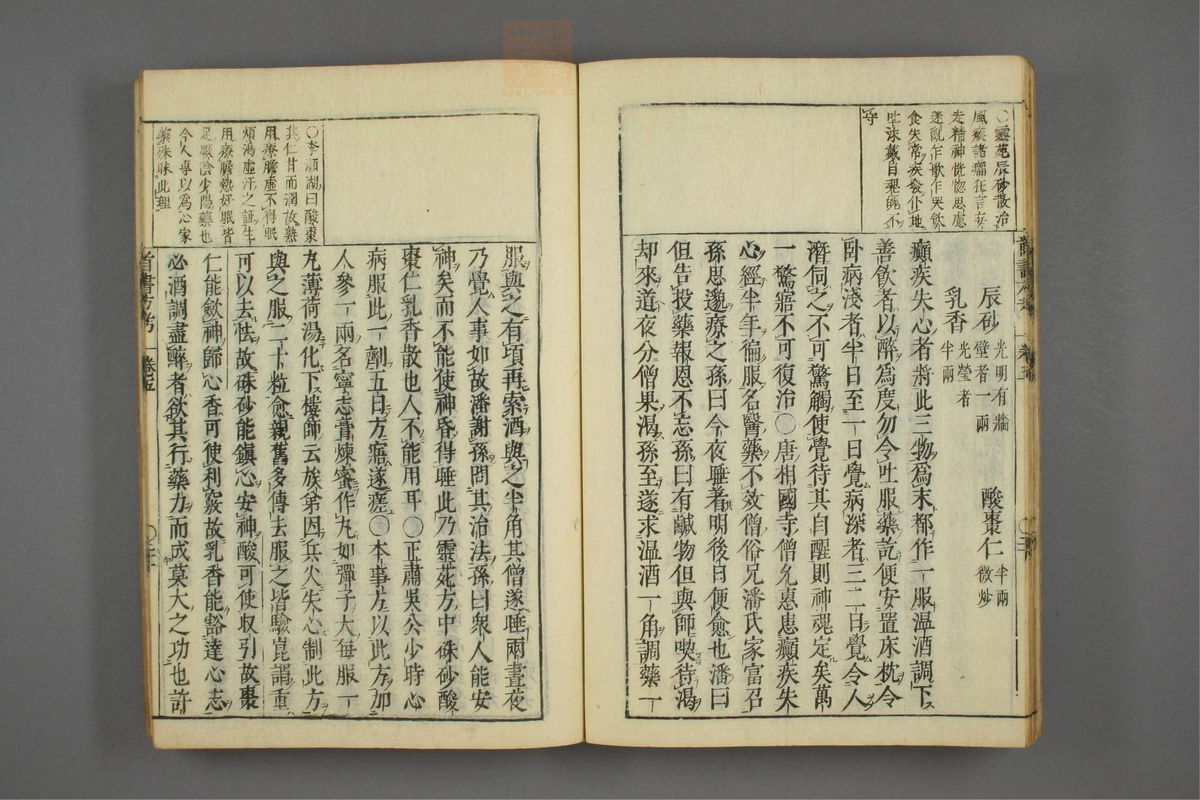 ○靈苑辰砂散治
風痰諸癎狂言妄
走精神恍惚思慮
迷亂乍歌乍哭飲
食失常疾發仆地
吐沫戴目魂魄不
守
辰砂 光明有牆壁者一兩 酸棗仁 半兩微炒
乳香 光瑩者半兩
癲疾失心者將此三物爲末都作一服温酒調下
善飲者以醉爲度勿令吐服藥訖便安置床枕令
臥病淺者半日至一日覺病深者三二日覺令人
濳伺之不可驚觸使覺待其自醒則神魂定矣萬
一驚寤不可復治○唐相國寺僧允惠患癲疾失
心經半年徧服名醫藥不效僧俗兄潘氏家富召
孫思邈療之孫曰今夜睡著明後日便愈也潘曰
但告投藥報恩不忘孫曰有鹹物但與師喫待渴
却來道夜分僧果渴孫至遂求温酒一角調藥一
首書方考 卷五
○李瀕湖曰酸棗
其仁甘而潤故熟
用療膽虛不得眠
煩渴虛汗之證生
用療膽熱好眠皆
足厥陰少陽藥也
今人專以爲心家
藥殊昧此理
服與之有項再索酒與之半角其僧遂睡兩晝夜
乃覺人事如故潘謝孫問其治法孫曰衆人能安
神矣而不能使神昏得睡此乃靈苑方中硃砂酸
棗仁乳香散也人不能用耳○正肅吳公少時心
病服此一劑五日方寤遂瘥○本事方以此方加
人參一兩名寧志膏煉蜜作丸如彈子大每服一
丸薄荷湯化下樓師云族弟因兵火失心制此方
與之服二十粒愈親舊多傳去服之皆驗崑謂重
可以去怯故硃砂能鎮心安神酸可使收引故棗
仁能歛神歸心香可使利竅故乳香能豁達心志
必酒調盡醉者欲其行藥力而成莫大之功也許
首書方考 卷五